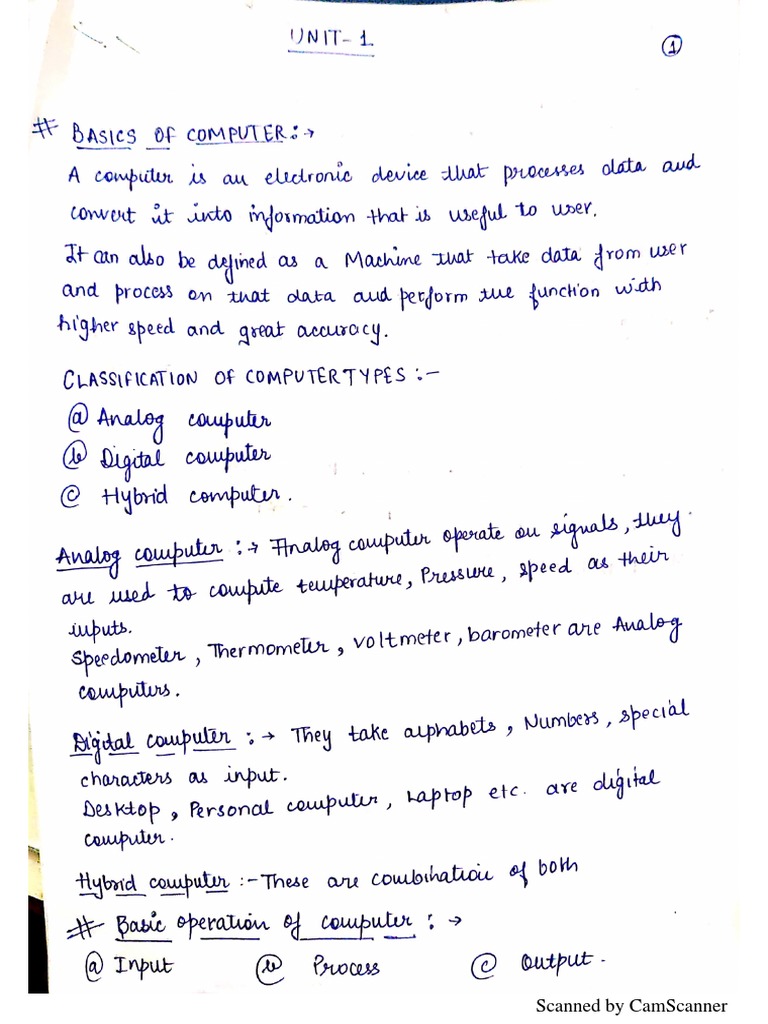 UNIT-1
1
# BASICS OF COMPUTER:→
A computer is an electronic device that processes data and
convert it into information that is useful to user.
It can also be defined as a Machine that take data from user
and process on that data and perform the function with
higher speed and great accuracy.
CLASSIFICATION OF COMPUTER TYPES :-
(a) Analog computer
(b) Digital computer
(c) Hybrid computer.
Analog computer :→ Analog computer operate on signals, they
are used to compute temperature, Pressure, speed as their
inputs.
Speedometer, Thermometer, voltmeter, barometer are Analog
computers.
Digital computer :→ They take alphabets, Numbers, special
characters as input.
Desktop, Personal computer, Laptop etc. are digital
computer.
Hybrid computer :- These are combination of both
# Basic operation of computer :→
(a) Input (b) Process (c) Output.
Scanned by CamScanner